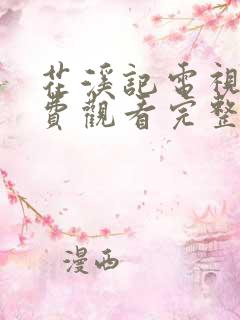 茈溪記電視
費觀看完整
漫西